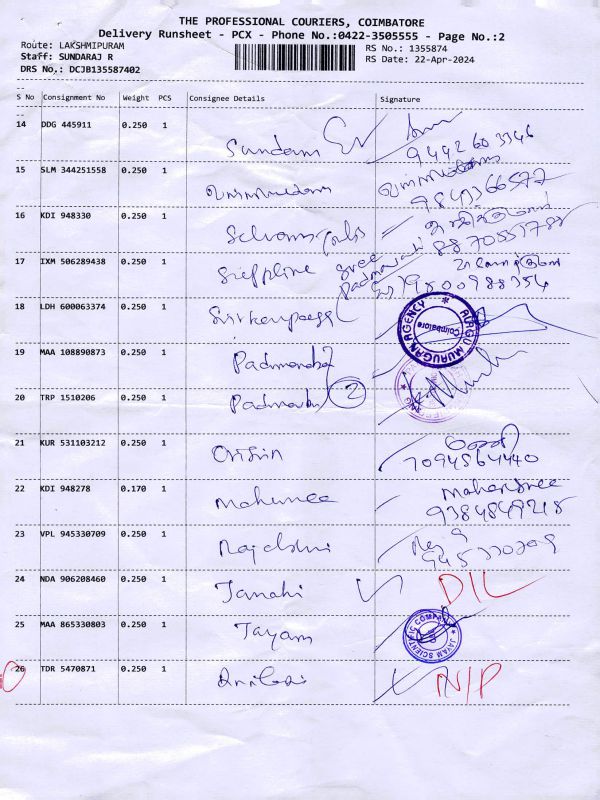 THE PROFESSIONAL COURIERS, COIMBATORE
Delivery Runsheet - PCX - Phone No.:0422-3505555 - Page No.:2
Route: LAKSHMIPURAM
RS No.: 1355874
Staff: SUNDARAJ R
RS Date: 22-Apr-2024
DRS No,: DCJB135587402
S No Consignment No Weight PCS Consignee Details Signature
14 DDG 445911 0.250 1 Sundam
9442603346
15 SLM 344251558 0.250 1
9843366577
16 KDI 948330 0.250 1
8870555788
17 IXM 506289438 0.250 1 Sree
Padmavati
9800988354
18 LDH 600063374 0.250 1
ALAGU MURUGAN AGENCY
Coimbatore
19 MAA 108890873 0.250 1
20 TRP 1510206 0.250 1 2
21 KUR 531103212 0.250 1 Origin
7094564440
22 KDI 948278 0.170 1
Mahendree
9384849218
23 VPL 945330709 0.250 1
24 NDA 906208460 0.250 1 Janaki D/L
25 MAA 865330803 0.250 1 Jayam
JAYAM SCIENTIFIC COMPANY
26 TDR 5470871 0.250 1 N/P